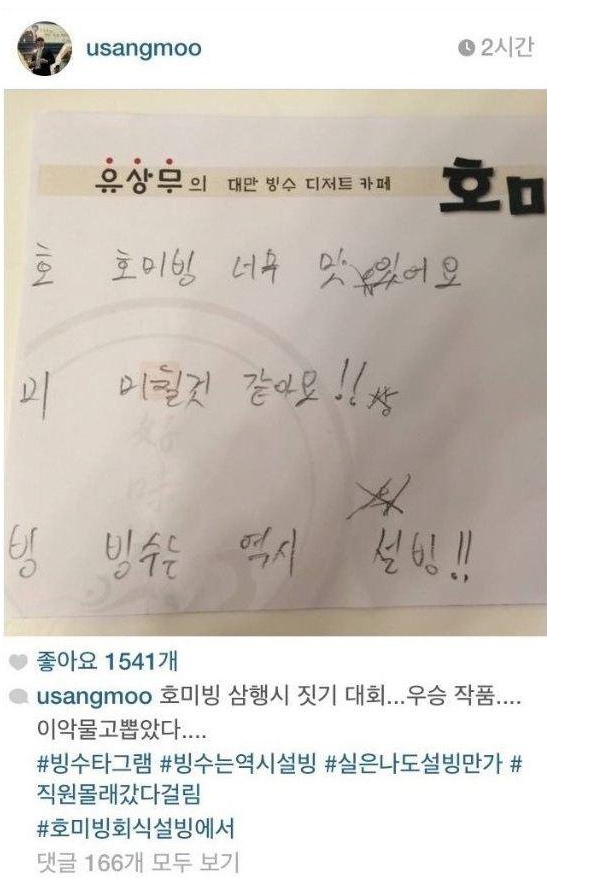 usangmoo
2시간
유상무의 대만 빙수 디저트 카페 호미
호 호미빙 너무 맛있어요
미 미칠것 같아요!!
빙 빙수는 역시 설빙!!
좋아요 1541개
usangmoo 호미빙 삼행시 짓기 대회...우승 작품....
이악물고뽑았다....
#빙수타그램 #빙수는역시설빙 #실은나도설빙만가 #
직원몰래갔다걸림
#호미빙회식설빙에서
댓글 166개 모두 보기